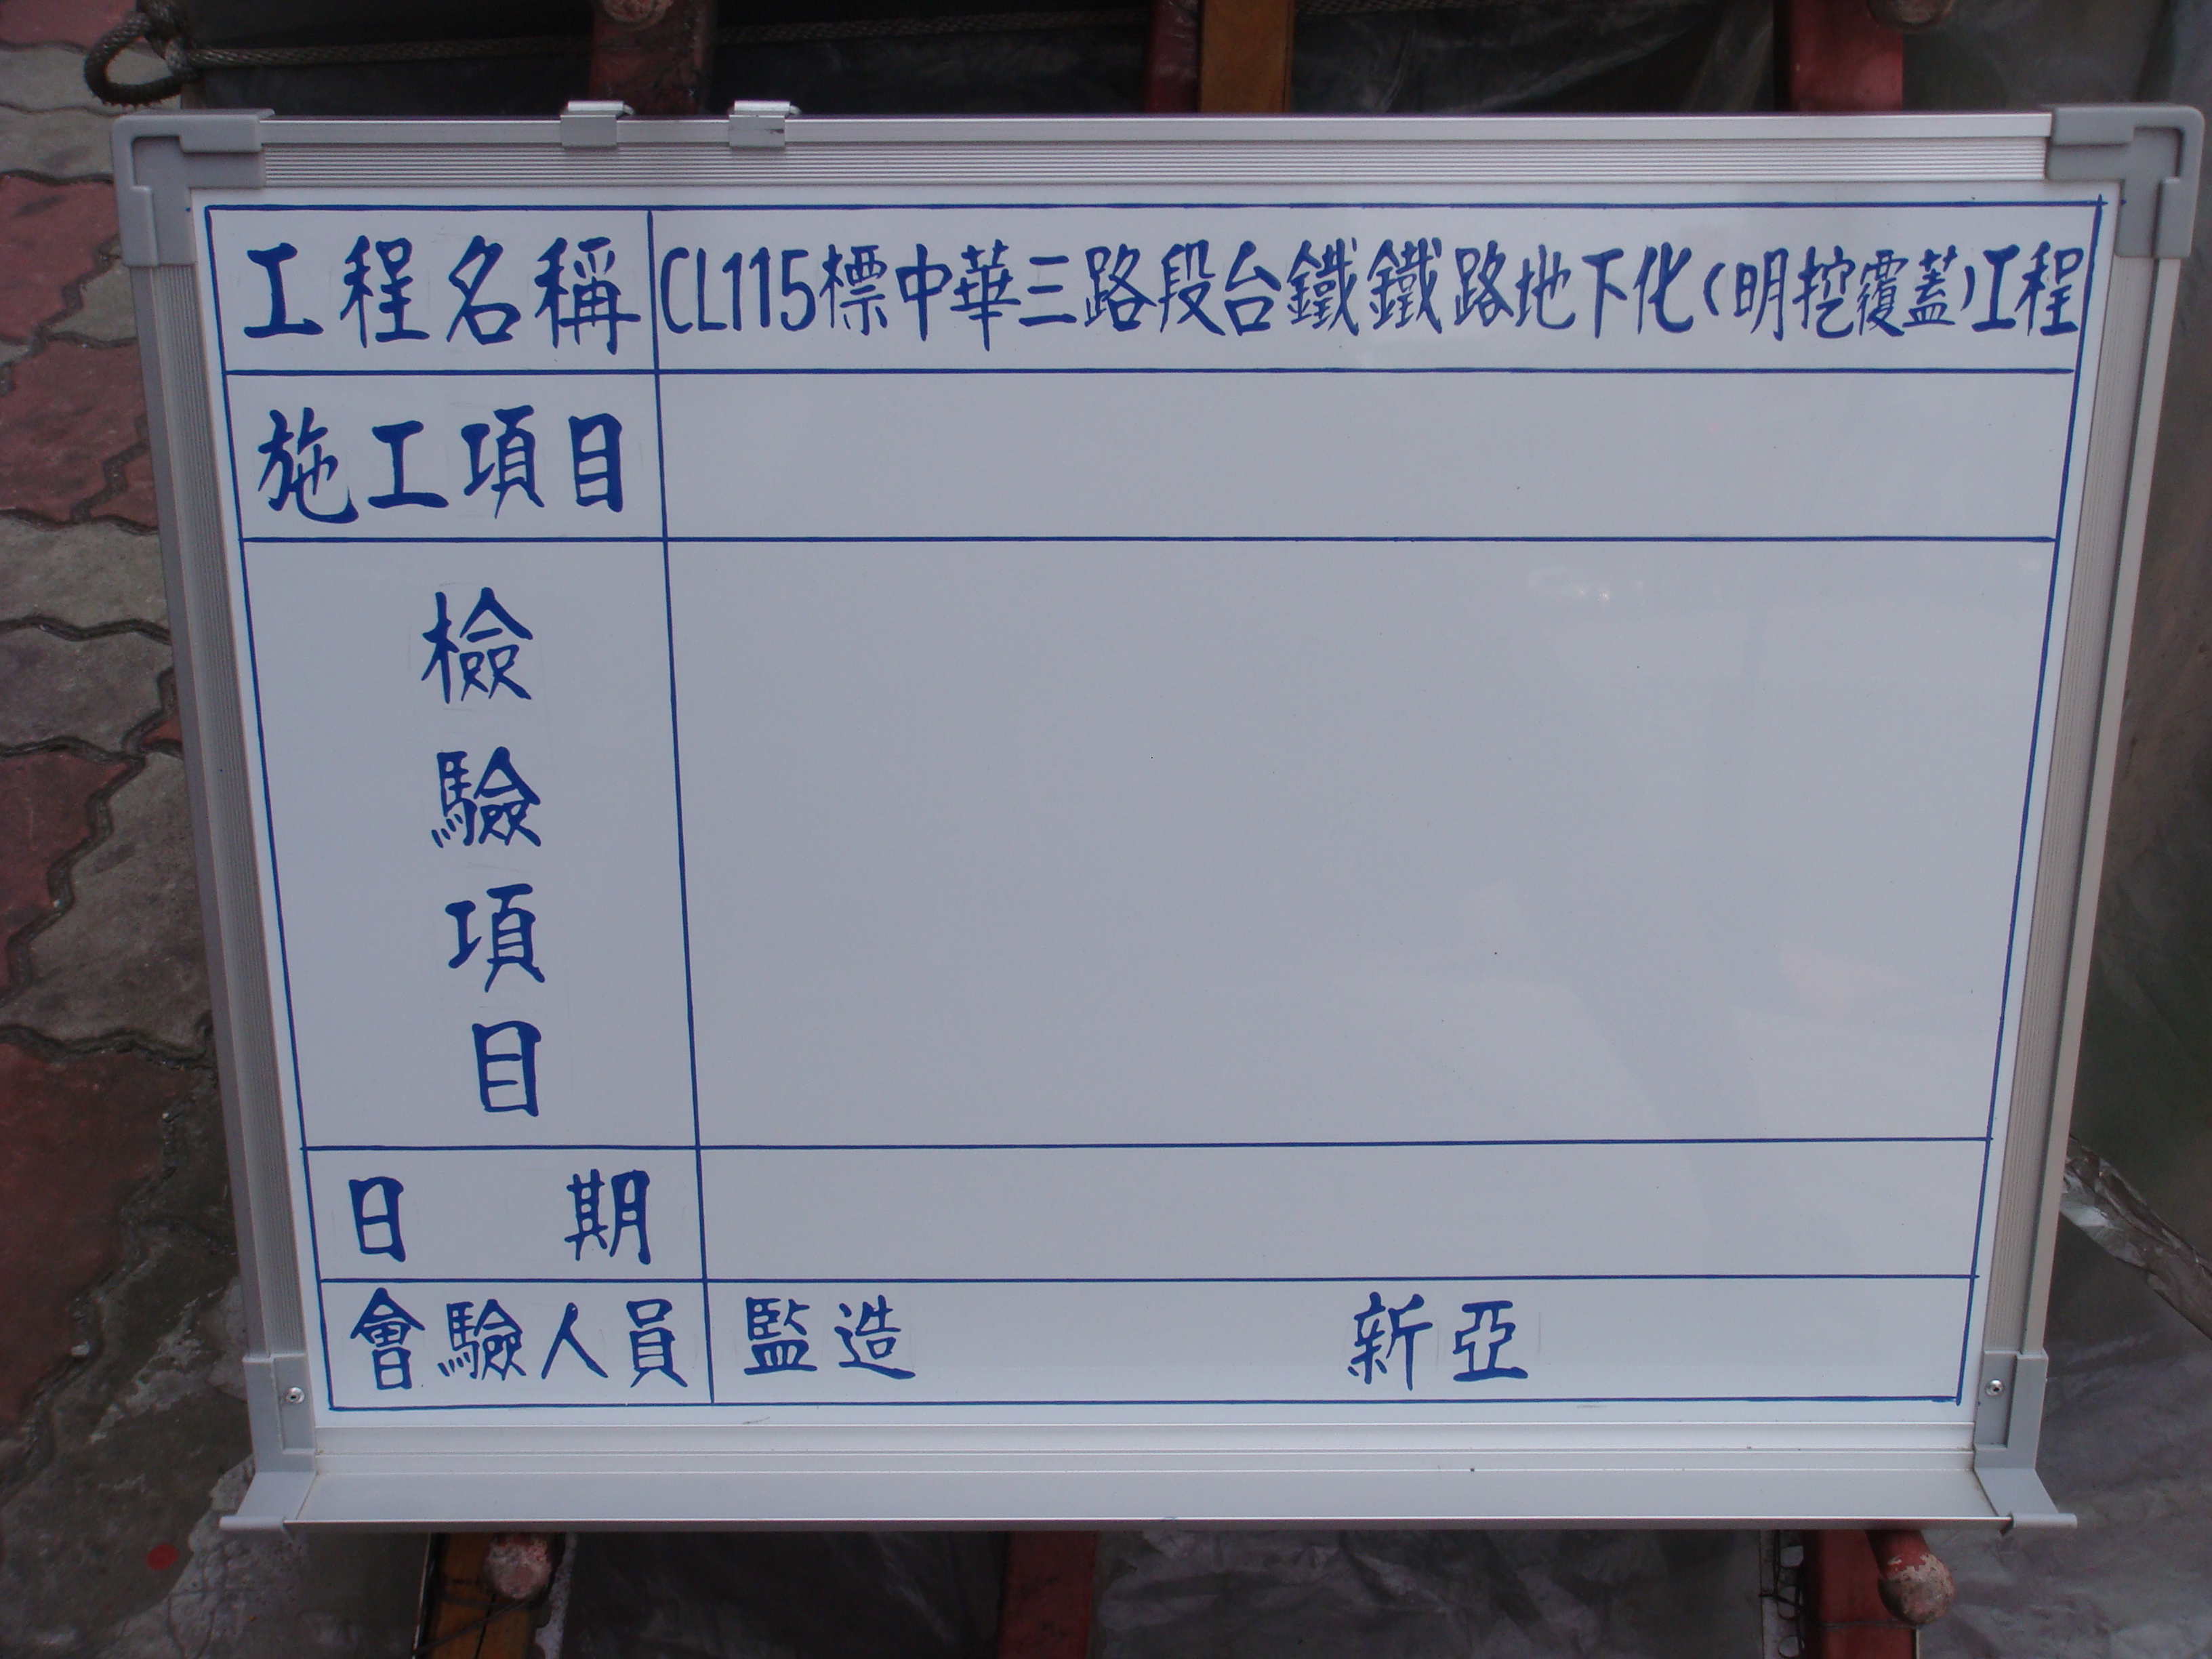 工程名稱 CL115標中華三路段台鐵鐵路地下化(明挖覆蓋)工程
施工項目
檢驗項目
日期
會驗人員 監造 新亞